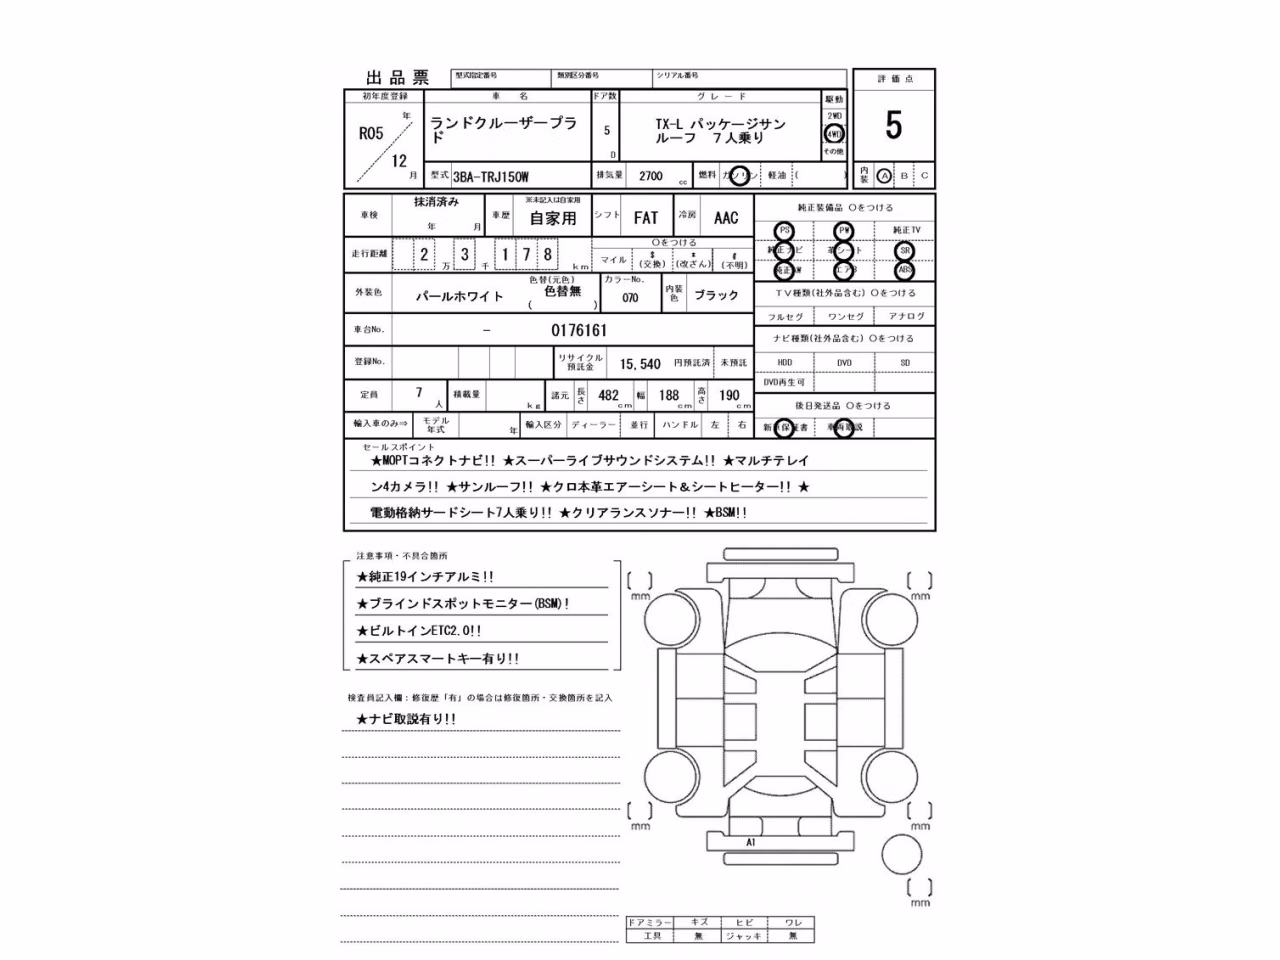 出品票
型式指定番号 類別区分番号 シリアル番号
評価点
初年度登録 車名 ドア数 グレード 駆動
R05 年 12 月
ランドクルーザープラ
ド
5 D
TX-L パッケージサン
ルーフ 7人乗り
2WD
4WD
その他
5
型式 3BA-TRJ150W 排気量 2700 cc 燃料 ガソリン 軽油 ( )
内装 A B C
車検 抹消済み 年 月 車歴 ※未記入は自家用 自家用 シフト FAT 冷房 AAC
純正装備品 ○をつける
PS PW 純正TV
純正ナビ 革シート SR
純正AW エアB ABS
走行距離 2 万 3 千 1 7 8 km
○をつける
マイル $ (交換) * (改ざん) # (不明)
外装色 パールホワイト 色替(元色) 色替無 ( ) カラーNo. 070 内装色 ブラック
TV種類(社外品含む) ○をつける
フルセグ ワンセグ アナログ
車台No. - 0176161
ナビ種類(社外品含む) ○をつける
HDD DVD SD
DVD再生可
登録No. リサイクル預託金 15,540 円預託済 未預託
定員 7 人 積載量 kg 諸元 長さ 482 cm 幅 188 cm 高さ 190 cm
後日発送品 ○をつける
新車保証書 車両取説
輸入車のみ⇒ モデル年式 年 輸入区分 ディーラー 並行 ハンドル 左 右
セールスポイント
★MOPTコネクトナビ!! ★スーパーライブサウンドシステム!! ★マルチテレイ
ン4カメラ!! ★サンルーフ!! ★クロ本革エアーシート＆シートヒーター!! ★
電動格納サードシート7人乗り!! ★クリアランスソナー!! ★BSM!!
注意事項・不具合箇所
★純正19インチアルミ!!
★ブラインドスポットモニター(BSM)!
★ビルトインETC2.0!!
★スペアスマートキー有り!!
検査員記入欄：修復歴「有」の場合は修復箇所・交換箇所を記入
★ナビ取説有り!!
mm mm
mm mm
A1
mm
ドアミラー キズ ヒビ ワレ
工具 無 ジャッキ 無